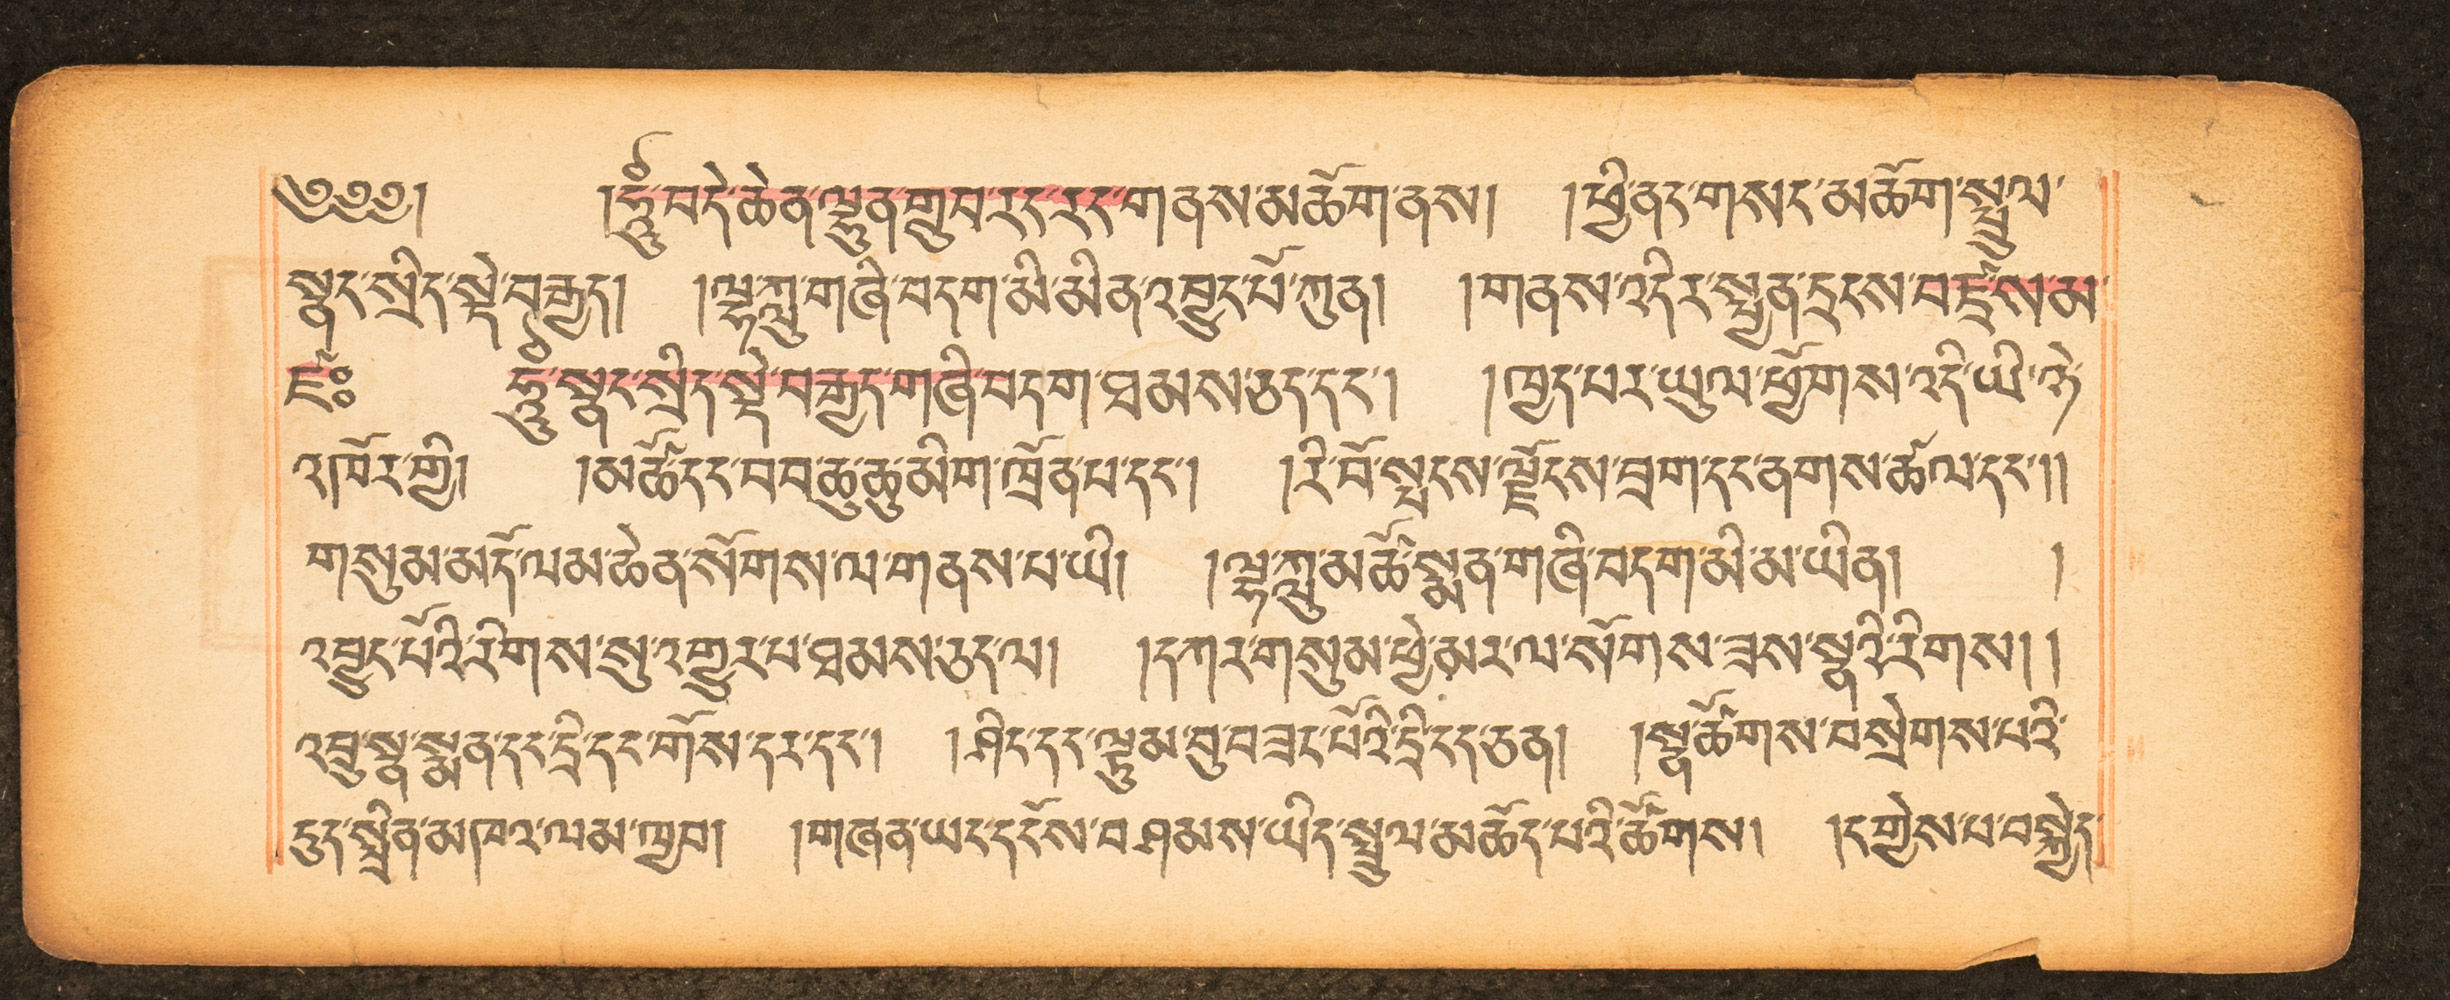 ༄༅༅། །ཧཱུྃ་བདེ་ཆེན་ལྷུན་གྲུབ་རང་རང་གནས་མཆོག་ནས། །ཕྱི་ནང་གསང་མཆོག་སྤྲུལ་
སྣང་སྲིད་སྡེ་བརྒྱད། །ལྷ་ཀླུ་གཞི་བདག་མི་མིན་འབྱུང་པོ་ཀུན། །གནས་འདིར་སྤྱན་དྲངས་བཛྲ་ས་མ་
ཛཿ ཧཱུྃ་སྣང་སྲིད་སྡེ་བརྒྱད་གཞི་བདག་ཐམས་ཅད་དང་། །ཁྱད་པར་ཡུལ་ཕྱོགས་འདི་ཡི་ཉེ་
འཁོར་གྱི། །མཚོ་དང་བབ་ཆུ་ཆུ་མིག་ཁྲོན་པ་དང་། །རི་བོ་སྤངས་ལྗོངས་བྲག་དང་ནགས་ཚལ་དང་།།
གསུམ་མདོ་ལམ་ཆེན་སོགས་ལ་གནས་པ་ཡི། །ལྷ་ཀླུ་མཚོ་སྨན་གཞི་བདག་མི་མ་ཡིན། །
འབྱུང་པོའི་རིགས་སུ་འགྱུར་པ་ཐམས་ཅད་ལ། །དཀར་གསུམ་ཕྱེ་མར་ལ་སོགས་ཟས་སྣའི་རིགས། །
འབྲུ་སྣ་སྨན་དང་དྲི་དང་གོས་དར་དང་། །ཤིང་དང་ལྡུམ་བུ་བཟང་པོའི་དྲི་ངད་ཅན། །སྣ་ཚོགས་བསྲེགས་པའི་
དུད་སྤྲིན་མཁའ་ལམ་ཁྱབ། །གཞན་ཡང་དངོས་བཤམས་ཡིད་སྤྲུལ་མཆོད་པའི་ཚོགས། །དགྱེས་པ་བསྐྱེད་